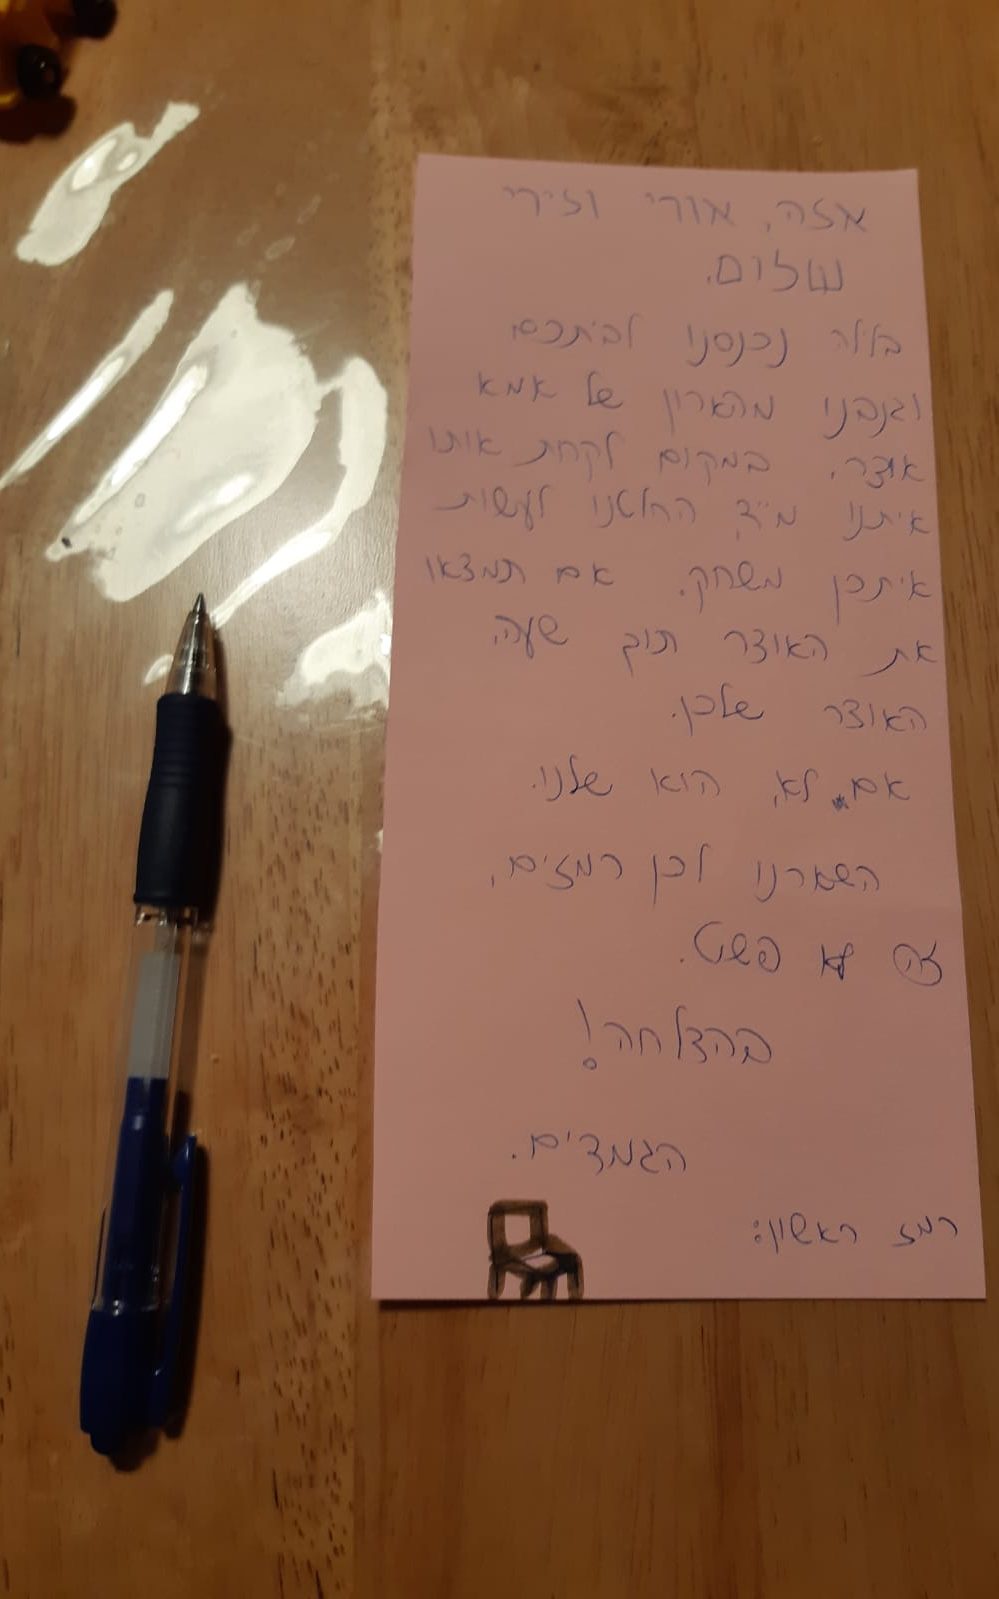 אלה, אורי וזירי
שלום.
בלילה נכנסנו לביתכם
וגנבנו מהארון של אמא
אוצר. במקום לקחת אותו
איתנו מיד החלטנו לעשות
איתכן משחק. אם תמצאו
את האוצר תוך שעה,
האוצר שלכן.
אם לא, הוא שלנו.
השארנו לכן רמזים,
זה לא פשוט.
בהצלחה!
הגמדים.
רמז ראשון: